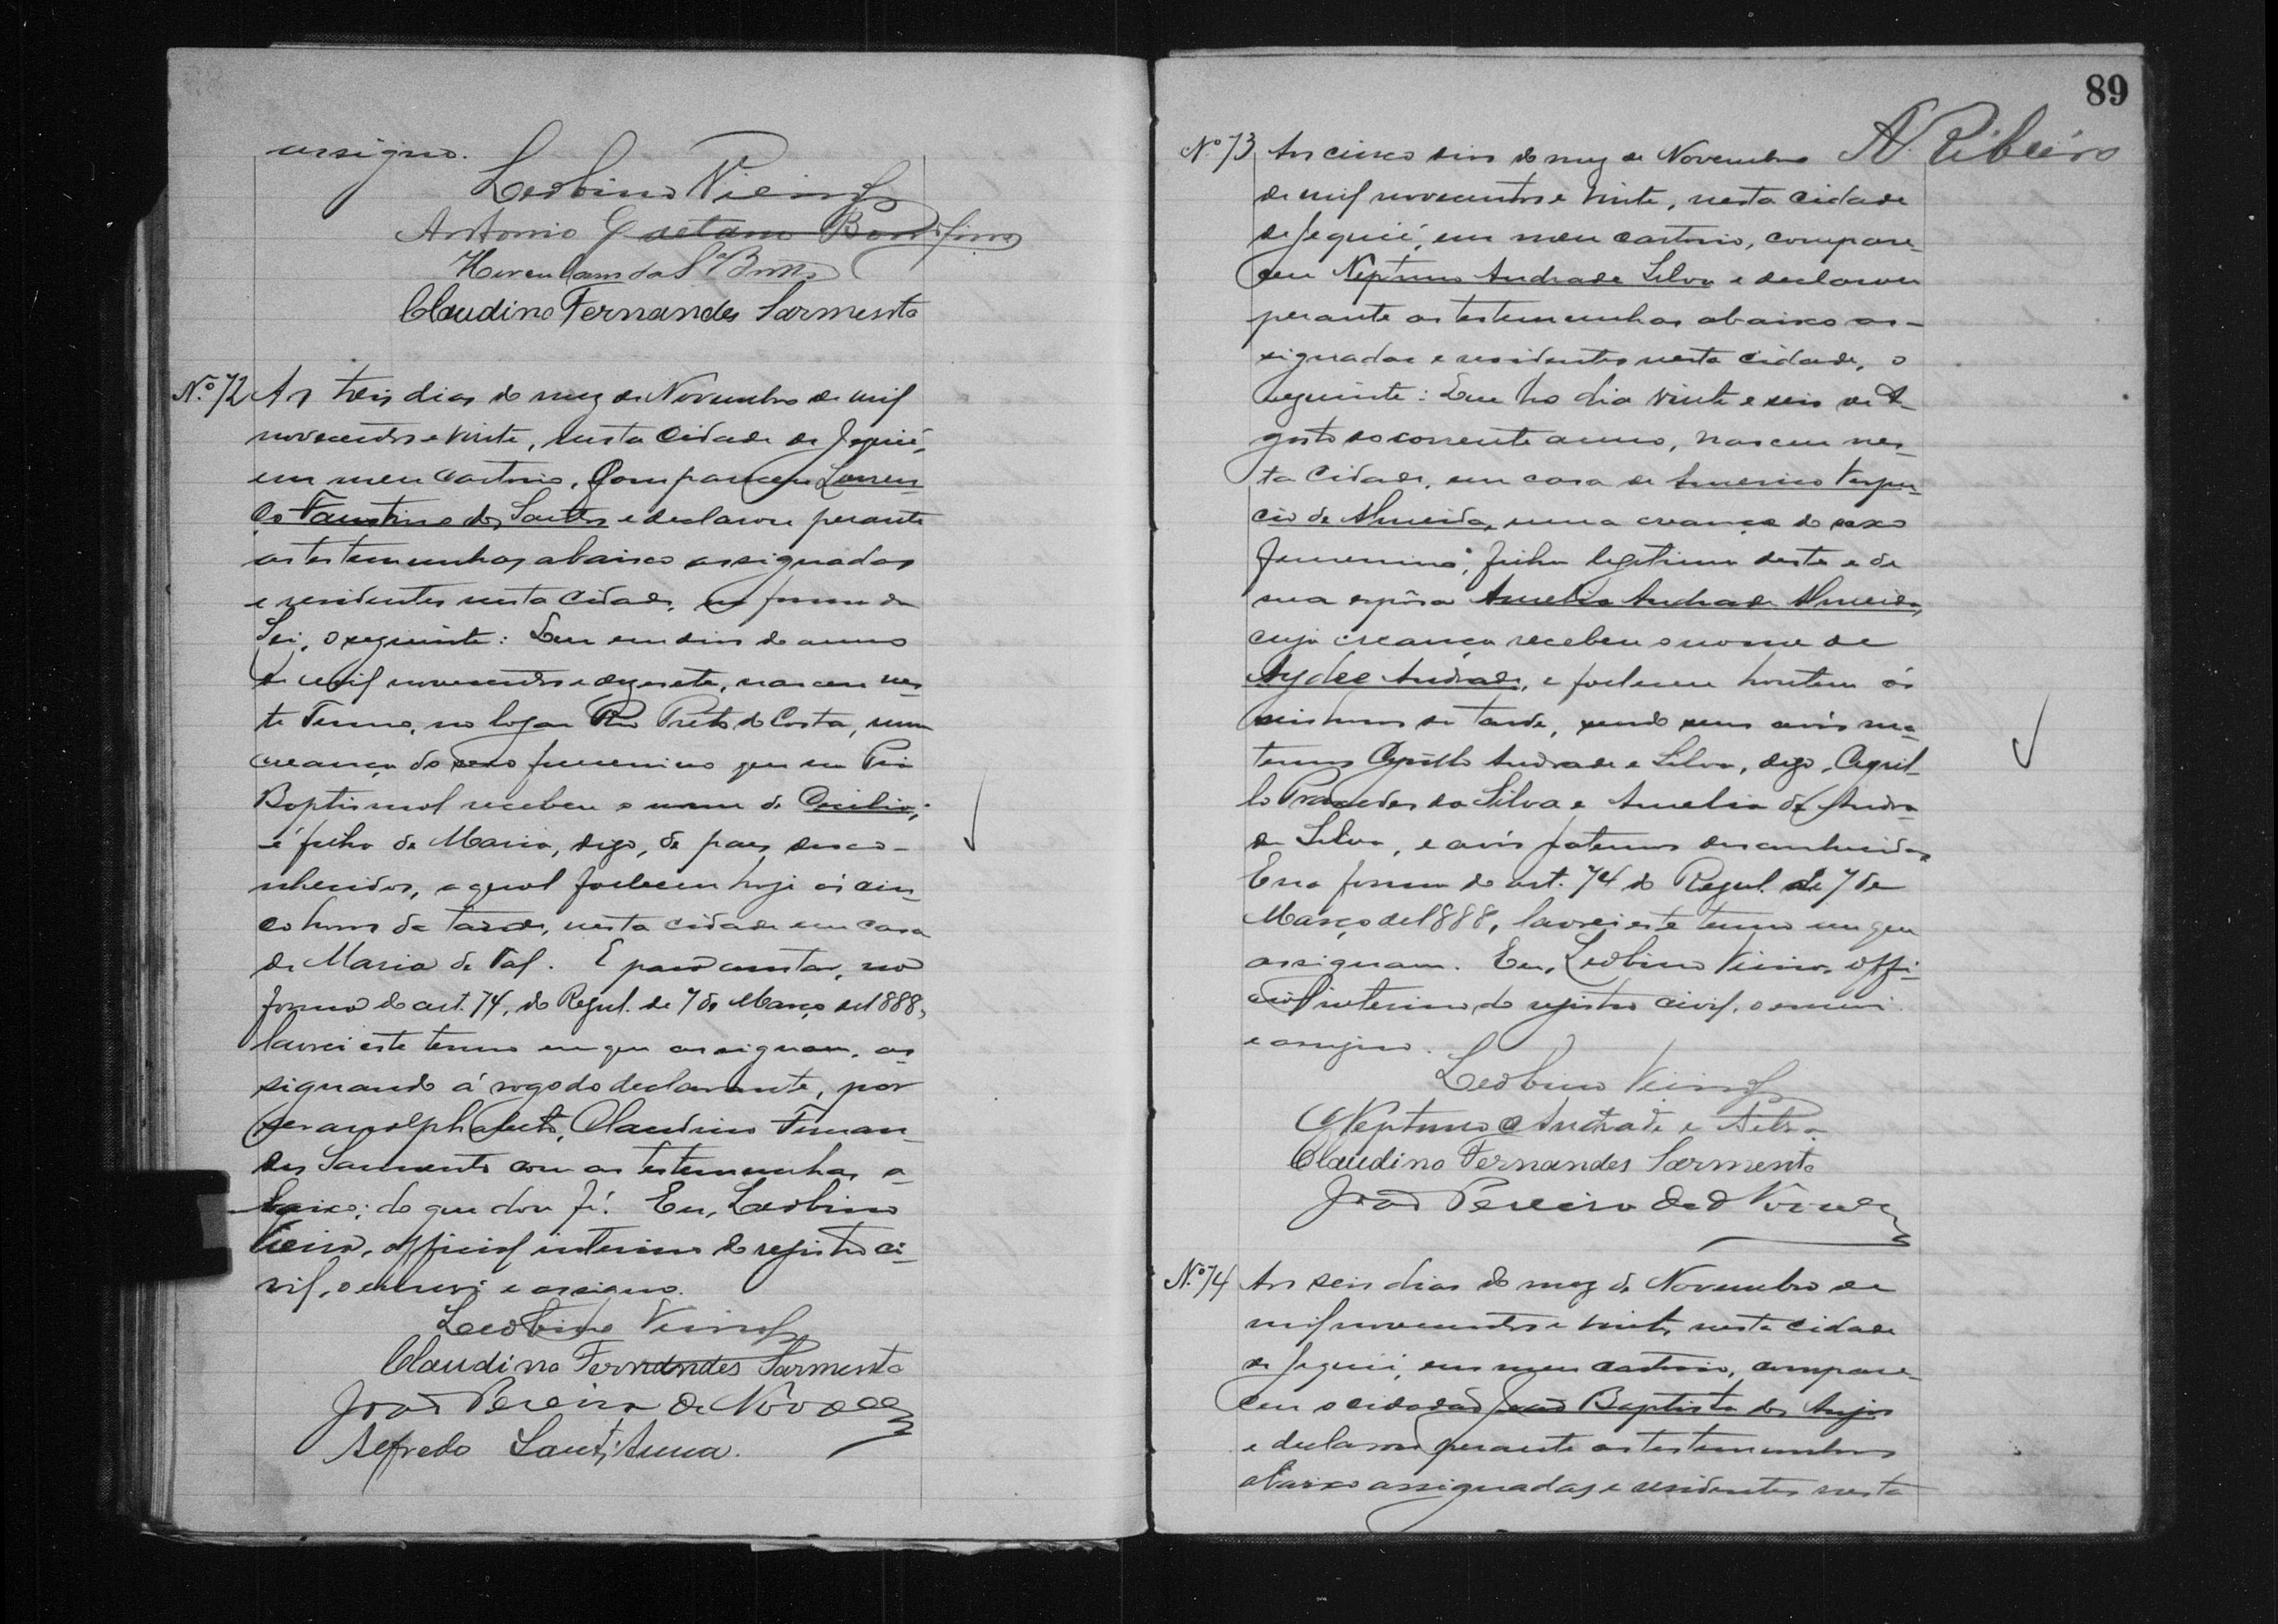 assigno.
Leobino Vieira
Antonio Caetano Bomfim
Herculano da Sª Britto
Claudino Fernandes Sarmento
Nº 72 Aos treis dias do mez de Novembro de mil
novecentos e vinte, nesta Cidade de Jequié,
em meu cartorio, Compareceu Louren-
ço Faustino dos Santos e declarou perante
as testemunhas abaixo assignadas
e residentes nesta Cidade, na forma da
Lei, o seguinte: Que em dias do anno
de mil novecentos e dezesete, nasceu nes-
te Termo, no logar Rio Preto do Costa, uma
creança do sexo femenino que na Pia
Baptismal recebeu o nome de Cecilia;
é filha de Maria, digo, de paes desco-
nhecidos, a qual falleceu hoje ás cin-
co horas da tarde, nesta cidade em casa
de Maria de Tal. E para constar, na
forma do art. 74, do Regul. de 7 de Março de 1888,
lavrei este termo em que assignam, as-
signando á rogo do declarante, por
ser analphabeto, Claudino Fernan-
des Sarmento com as testemunhas a-
baixo; do que dou fé. Eu, Leobino
Vieira, official interino do registro ci-
vil, o escrevi e assigno.
Leobino Vieira
Claudino Fernandes Sarmento
João Pereira de Novaes
Alfredo Sant'Anna.
89
A. Ribeiro
Nº 73 Aos cinco dias do mez de Novembro
de mil novecentos e vinte, nesta cidade
de Jequié, em meu cartorio, compare-
ceu Neptuno Andrade Silva e declarou
perante as testemunhas abaixo as-
signadas e residentes nesta cidade, o
seguinte: Que no dia vinte e seis de A-
gosto do corrente anno, nasceu nes-
ta Cidade, em casa de Americo Vespu-
cio de Almeida, uma creança do sexo
femenino, filha legitima deste e de
sua espôsa Amelia Andrade Almeida,
cuja creança recebeu o nome de
Aydee Andrade, e falleceu hontem ás
seis horas da tarde, sendo seus avós ma-
ternos Andrade e Silva, digo,
da Silva e Amelia de Andra-
de Silva, e avós paternos desconhecidos
E na forma do art. 74 do Regul. de 7 de
Março de 1888, lavrei este termo em que
assignam. Eu, Leobino Vieira, offi-
cial interino do registro civil, o escrevi
e assigno.
Leobino Vieira
Neptuno Andrade e Silva
Claudino Fernandes Sarmento
João Pereira de Novaes
Nº 74 Aos seis dias do mez de Novembro de
mil novecentos e vinte, nesta cidade
de Jequié, em meu cartorio, compare-
ceu o cidadão João Baptista dos Anjos
e declarou perante as testemunhas
abaixo assignadas e residentes nesta